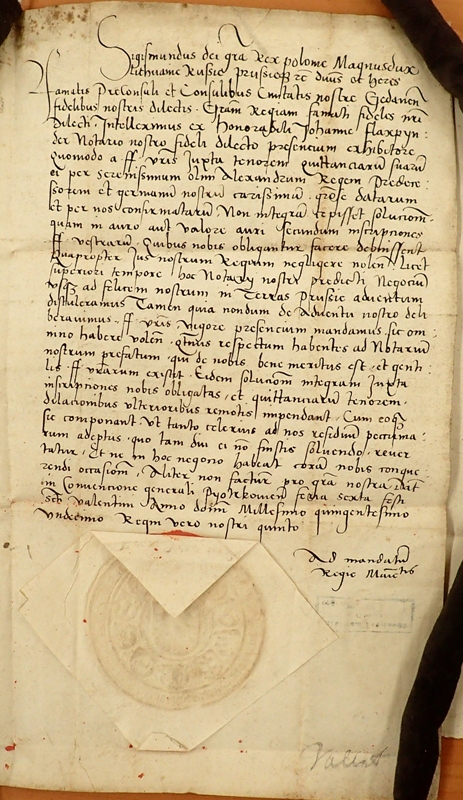 Sigismundus dei gra Rex polonie Magnusdux
lithuanie Russie prussieqz etc dnus et heres
famatis Preconsuli et Consulibus Civitatis nostre Gedanen
fidelibus nostris dilectis. Gram Regiam famati fideles nri
dilecti. Intelleximus ex Honorabili Johanne flaxpyn:
der Notario nostro fideli dilecto presencium exhibitore
quomodo a ff vris Juxta tenorem quittanciarum suarum
ei per serenissimum olim Alexandrum Regem Predeces:
sorem et germanum nostrum carissimum datarum
et per nos confirmatarum. Non integram cepisset solucionem.
quam in auro aut valore auri secundum inscripciones
ff vestrarum. Quibus nobis obligantur facere debuissent
Quapropter Jus nostrum Regium negligere nolen licet
superiori tempore hoc Notarij nostri predicti Negocium
usqz ad felicem nostrum in Terras Prussie adventum
distuleramus Tamen quia nondum de Adventu nostro deli
beravimus. ff vris vigore presencium mandamus sic om:
nino habere volen. respectum habentes ad Notarium
nostrum prefatum qui de nobis bene meritus est et genti:
lis ff vrarum existit. Eidem solucionem integram Juxta
inscripciones nobis obligatas et quittanciarum tenorem.
dilacionibus ulterioribus remotis impendant. Cum
sic componant Ut tanto celerius ad nos residuum peccunia:
rum adeptus quo tam diu ei non soluendo. rever
tatur. Et ne in hoc negocio habeat coram nobis conque
rendi occasionem. Aliter non factur pro gra nostra
in Convencione generali Pyotrkovien feria sexta festi
scti Valentini Anno domini Millesimo quingentesimo
undecimo Regni vero nostri quinto
Ad mandatum
Regie Maiestatis